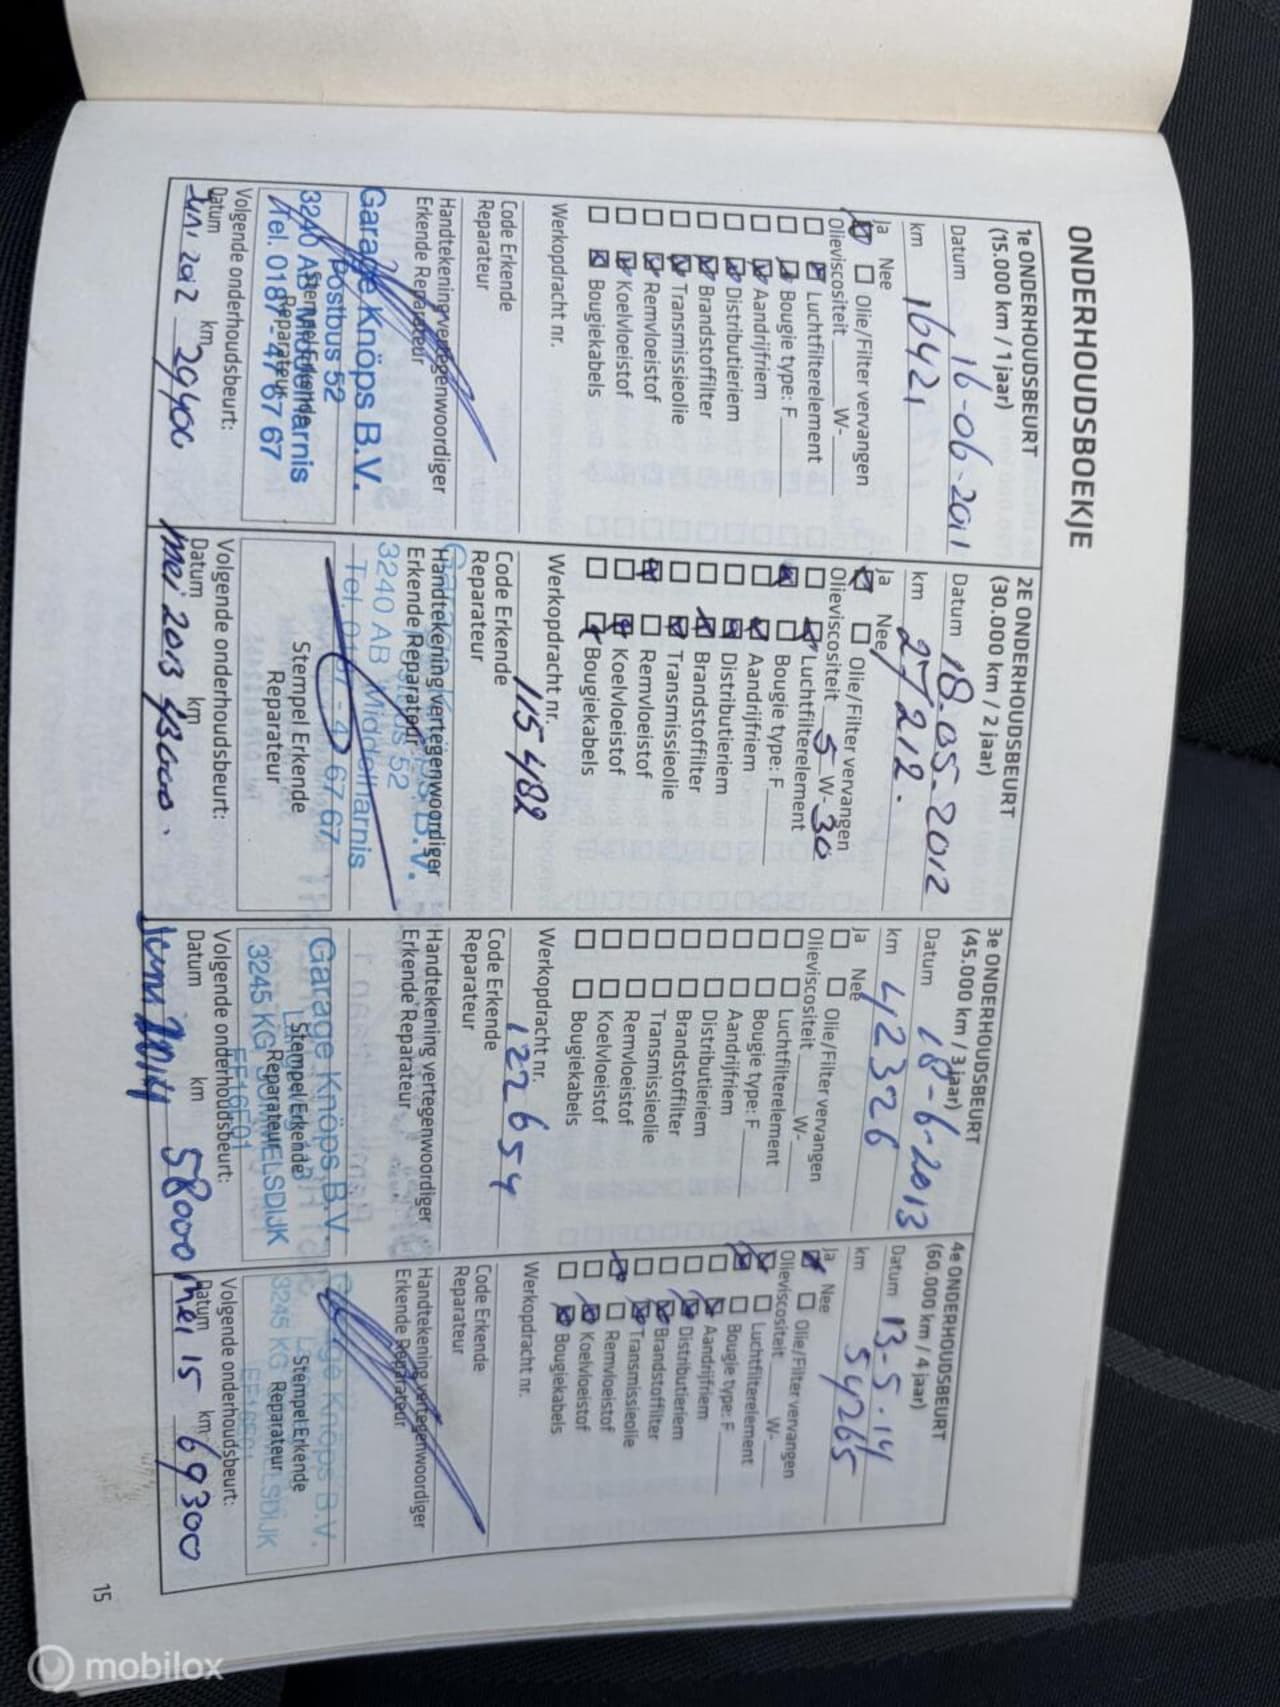 ONDERHOUDSBOEKJE
1e ONDERHOUDSBEURT
(15.000 km / 1 jaar)
Datum 16-06-2011
km 16421
Ja Nee
Olie/Filter vervangen
Olieviscositeit W-
Luchtfilterelement
Bougie type: F
Aandrijfriem
Distributieriem
Brandstoffilter
Transmissieolie
Remvloeistof
Koelvloeistof
Bougiekabels
Werkopdracht nr.
Code Erkende
Reparateur
Handtekening vertegenwoordiger
Erkende Reparateur
Garage Knöps B.V.
Postbus 52
3240 AB Middelharnis
Tel. 0187 - 47 67 67
Stempel Erkende
Reparateur
Volgende onderhoudsbeurt:
Datum km
Juni 2012 29400
2E ONDERHOUDSBEURT
(30.000 km / 2 jaar)
Datum 18-05-2012
km 27212.
Ja Nee
Olie/Filter vervangen
Olieviscositeit 5 W- 30
Luchtfilterelement
Bougie type: F
Aandrijfriem
Distributieriem
Brandstoffilter
Transmissieolie
Remvloeistof
Koelvloeistof
Bougiekabels
Werkopdracht nr.
115482
Code Erkende
Reparateur
Handtekening vertegenwoordiger
Erkende Reparateur
3240 AB Middelharnis
Tel. 0187 - 47 67 67
Stempel Erkende
Reparateur
Volgende onderhoudsbeurt:
Datum km
mei 2013 43000.
3e ONDERHOUDSBEURT
(45.000 km / 3 jaar)
Datum 18-6-2013
km 42326
Ja Nee
Olie/Filter vervangen
Olieviscositeit W-
Luchtfilterelement
Bougie type: F
Aandrijfriem
Distributieriem
Brandstoffilter
Transmissieolie
Remvloeistof
Koelvloeistof
Bougiekabels
Werkopdracht nr.
122654
Code Erkende
Reparateur
Handtekening vertegenwoordiger
Erkende Reparateur
Garage Knöps B.V.
3245 KG SOMMELSDIJK
Stempel Erkende
Reparateur
Volgende onderhoudsbeurt:
Datum km
Juni 2014 58000
4e ONDERHOUDSBEURT
(60.000 km / 4 jaar)
Datum 13-5-14
km 54265
Ja Nee
Olie/Filter vervangen
Olieviscositeit W-
Luchtfilterelement
Bougie type: F
Aandrijfriem
Distributieriem
Brandstoffilter
Transmissieolie
Remvloeistof
Koelvloeistof
Bougiekabels
Werkopdracht nr.
Code Erkende
Reparateur
Handtekening vertegenwoordiger
Erkende Reparateur
Garage Knöps B.V.
3245 KG SOMMELSDIJK
Stempel Erkende
Reparateur
Volgende onderhoudsbeurt:
Datum km
mei 15 69300
15
mobilox